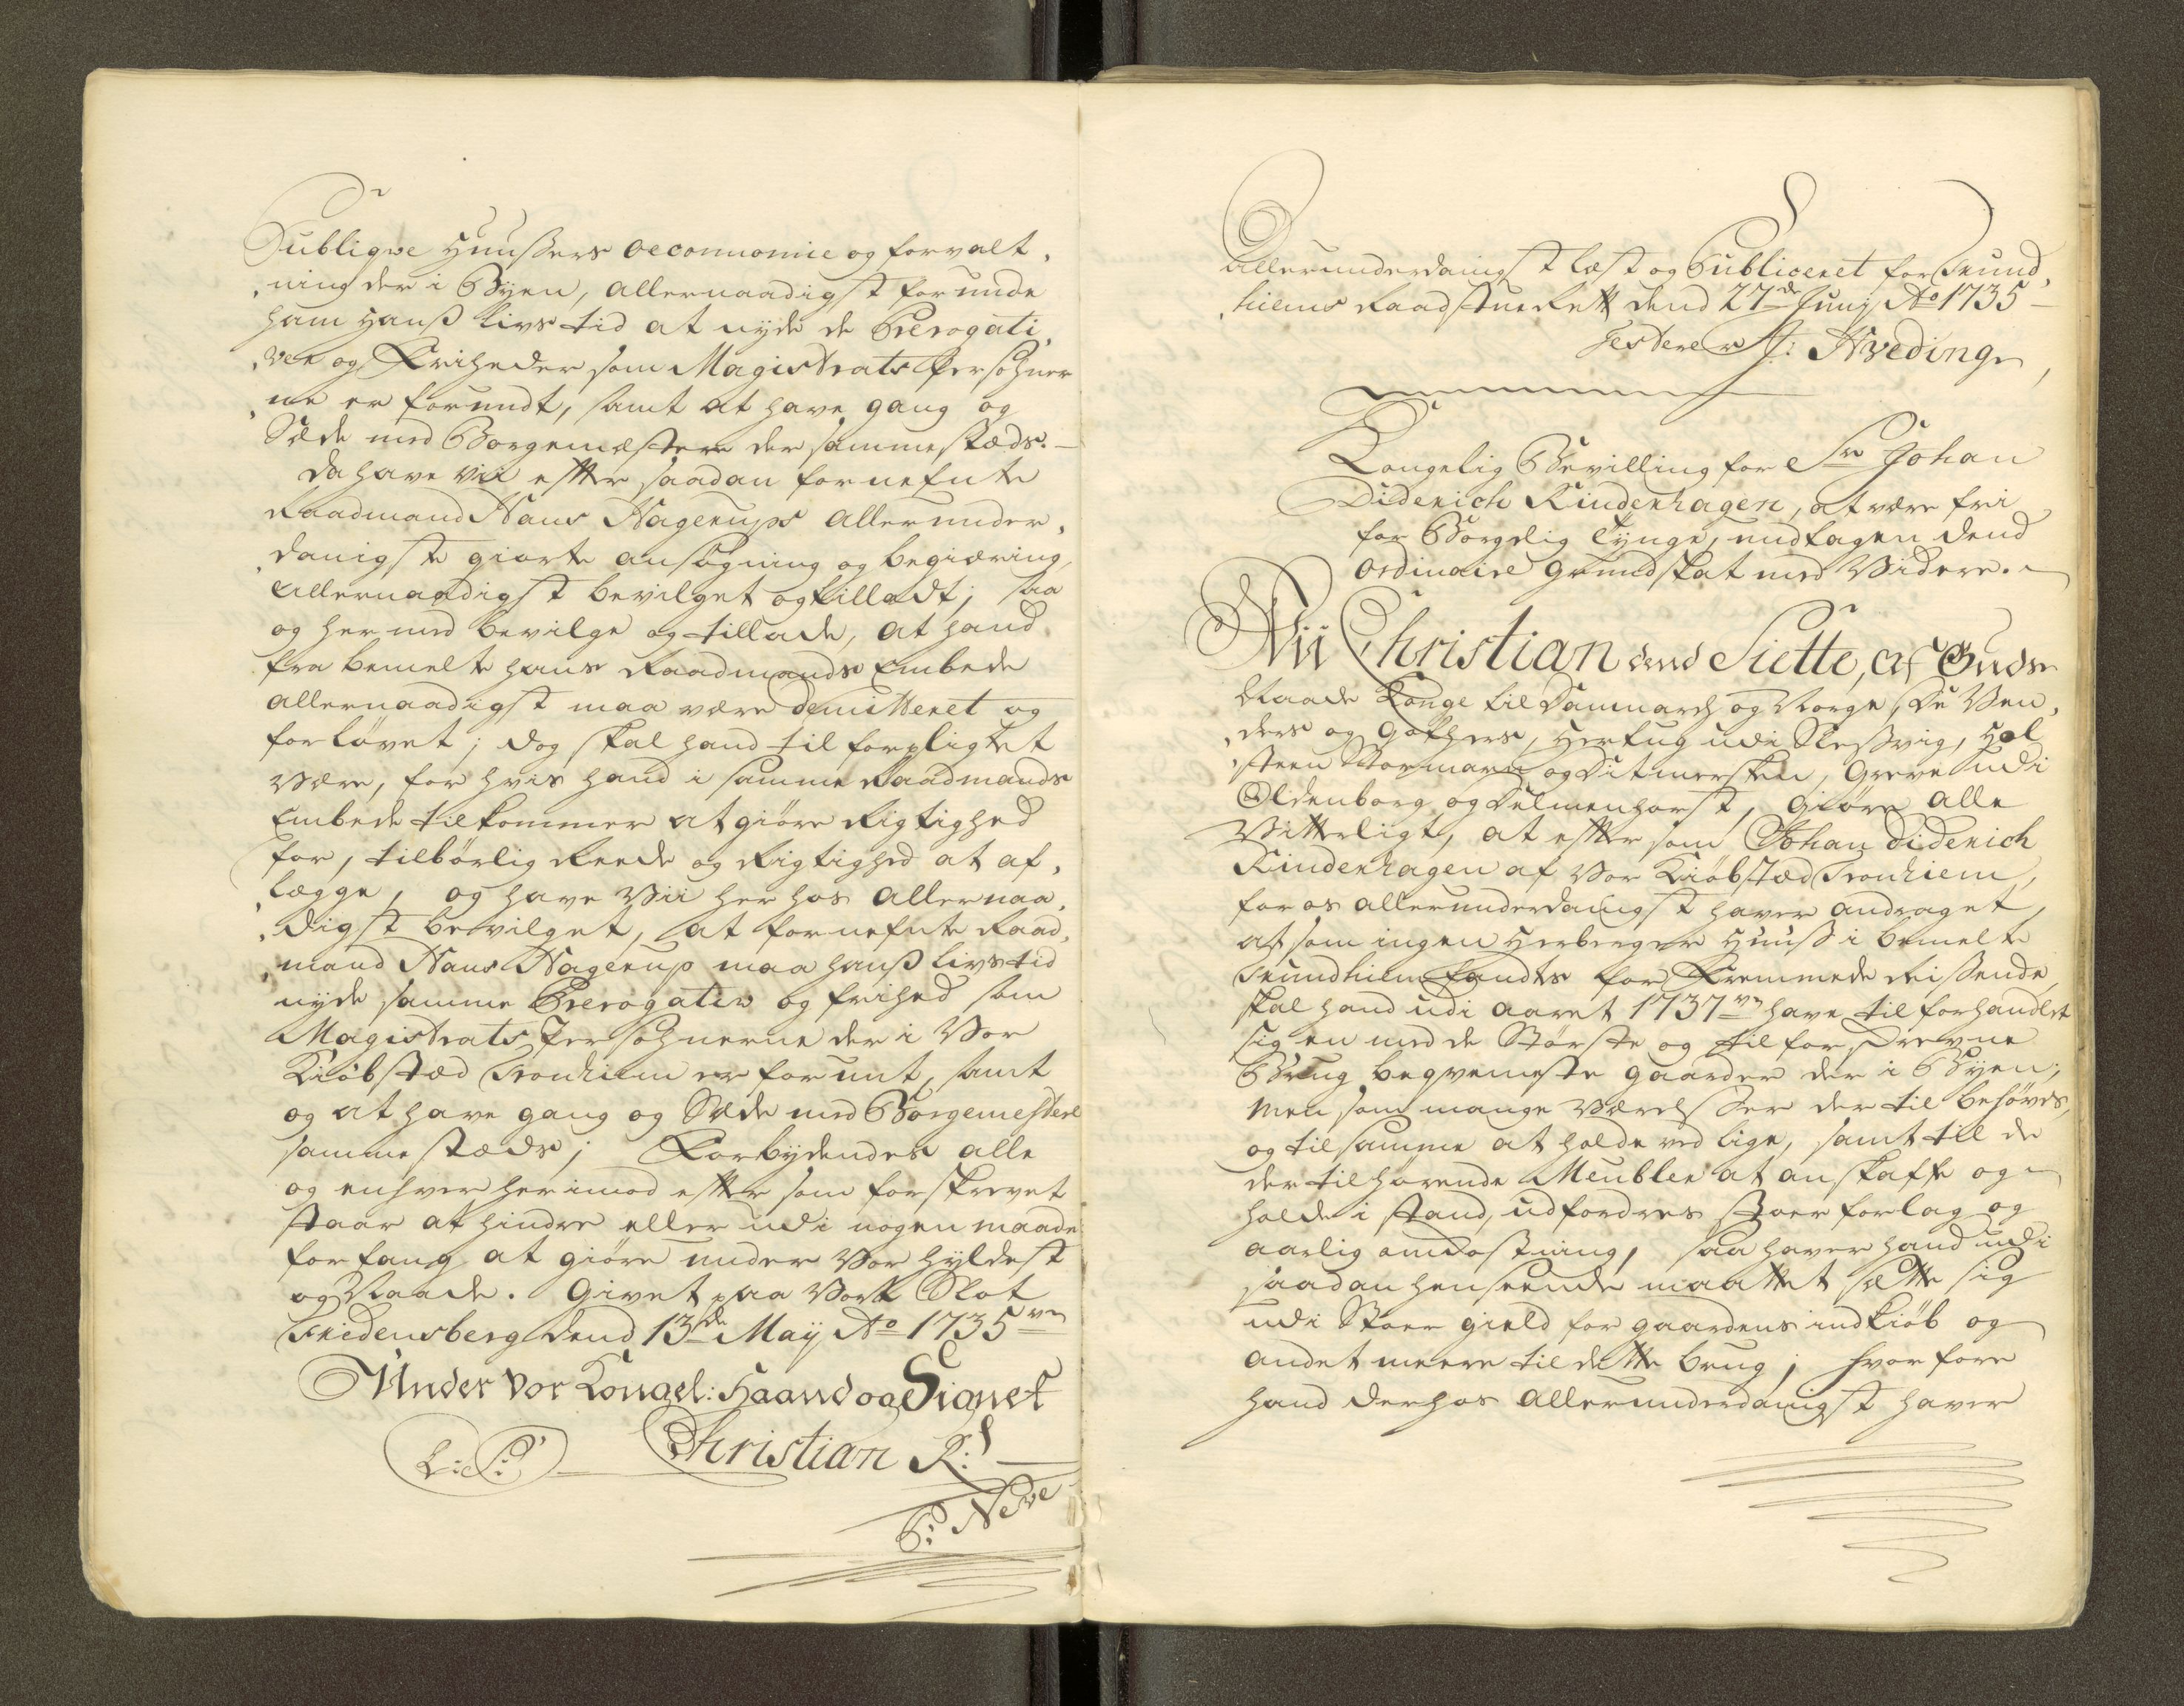 Publiqve Huußers oeconnomie og forvalt,
,ning der i Byen, allernaadigst forunde
ham Hanß livs tid at nyde de Prerogati,
,ver og Friheder som Magistrats Persohner
,ne er forundt, samt at have gang og
Sæde med Borgemestere der sammestæds. —
da have Vii efter saadan fornefnte
Raadmand Hans Hagerups allerunder,
,danigste giorte ansøgning og begiæring,
allernaadigst bevilget og tilladt; saa
og her med bevilge og tillade, at hand
fra bemelte hans Raadmands Embede
allernaadigst maa være demitteret og
forløvet; dog skal hand til forpligtet
være, for hvis hand i samme Raadmands
Embede tilkommer at giøre Rigtighed
for, tilbørlig Reede og Rigtighed at af,
,lægge, og have Vii her hos allernaa,
,digst bevilget, at fornefnte Raad,
,mand Hans Hagerup maa hanß livs tid
nyde samme Prerogativ og frihed som
Magistrats Persohnerne der i Vor
Kiøbstæd Tronhiem er forunt, samt
og at have gang og Sæde med Borgemestere
sammestæds; Forbydendes alle
og enhver herimod efter som forskrevet
staar at hindre eller udi nogen maade
forfang at giøre under Vor Hyldest
og Naade. Givet paa Vort Slot
Fridensberg dend 13de Maij Ao 1735ve
Under Vor Kongel: Haand og Signet
L: S: Christian R:
P: Neve
Allerunderdanigst læst og Publiceret for Trund,
,hiems Raadstue Rett dend 27de Junij Ao 1735 —
Testerer J: Hveding
Kongelig Bevilling for Sr Johan
Diderich Rindenhagen, at være fri
for Borgelig Tynge, undtagen dend
ordinaire grundskat med Videre.
Vii Christian dend Siette, af Guds
Naade Konge til Danmarch og Norge, De Ven,
,ders og Gothers, Hertug udi Sleßvig, Hol
,steen Stormarn og Ditmersken, Greve udi
Oldenborg og Delmenhorst, giøre alle
Vitterligt, at efter som Johan Diderich
Rindenhagen af Vor Kiøbstæd Tronhiem,
for os allerunderdanigst haver andraget,
at som ingen Herberger Huuß i bemelte
Trundhiem fandtes for Fremmede Reißende,
skal hand udi aaret 1737ve have tilforhandlet
sig en med de Største og til forskrevne
Brug beqvemeste gaarder der i Byen;
Men som mange Værelßer der til behøves,
og til samme at holde ved lige, samt till de
der tilhørende Meubler at anskaffe og
holde i stand, udfordres stoer forlag og
aarlig omkostning, saa haver hand udi
saadan henseende maattet sætte sig
udi Stoer gield for gaardens indkiøb og
andet meere til dette brug; hvorfore
hand derhos allerunderdanigst haver